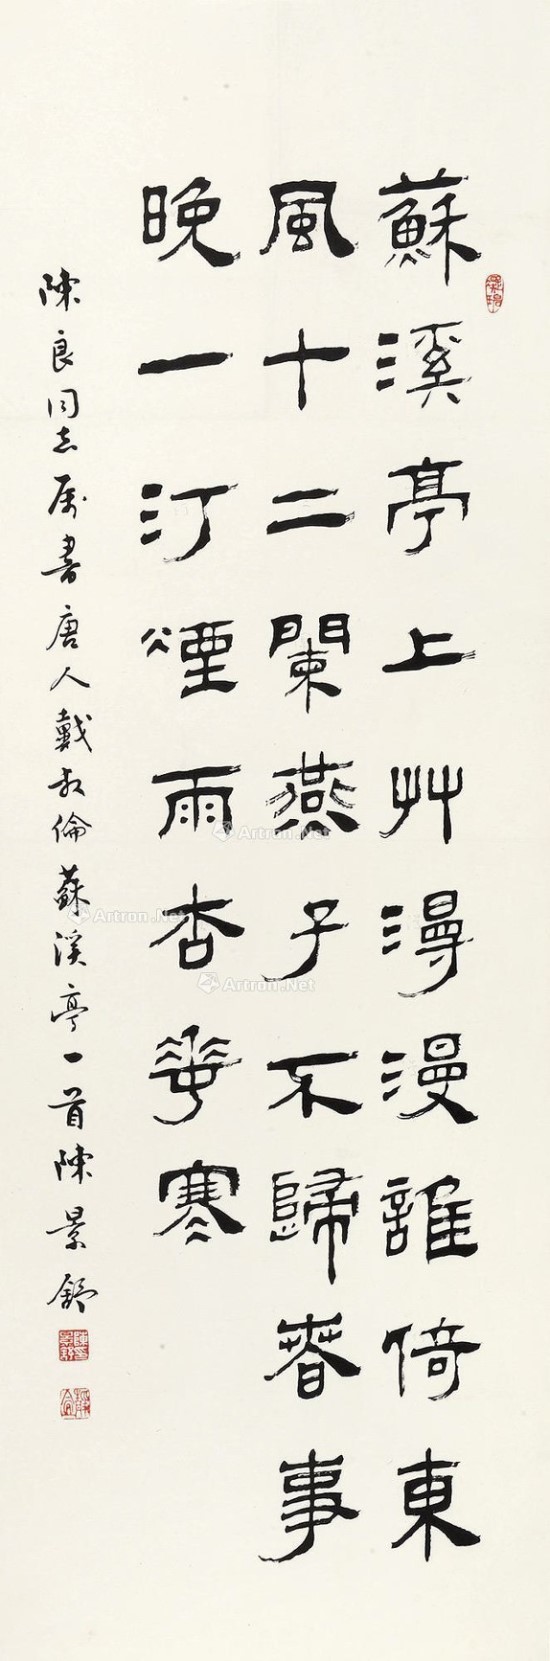 蘇溪亭上艸漫漫誰倚東
風十二闌燕子不歸春事
晚一汀煙雨杏華寒
陳良同志屬書唐人戴叔倫蘇溪亭一首陳景舒
Artron.Net
Artron.Net
Artron.Net